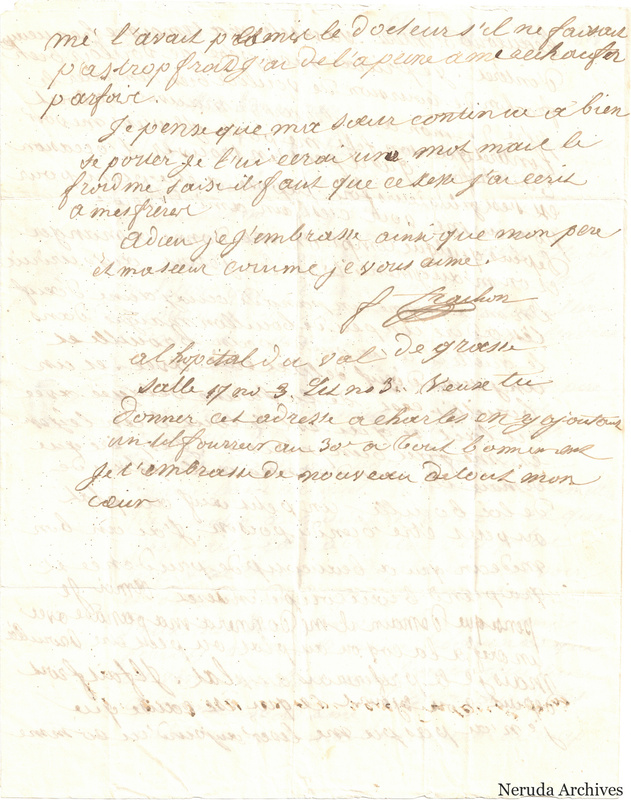 mé l'avait permis le docteur s'il ne faisait
pas trop froid j'ai de la peine a me rechaufer
parfois.
Je pense que ma sœur continue a bien
se porter je lui ecrai une mot mais le
froid me saisi il faut que cesse j'ai ecrit
a mes frères
adieu je t'embrasse ainsi que mon pere
et ma sœur comme je vous aime.
f
al hopital du val de grasse
salle 17 no 3. Lit no 3. Veux tu
donner cet adresse a charles en y ajoutant
au 30e a
Je t'embrasse de nouveau de tout mon
cœur
Neruda Archives